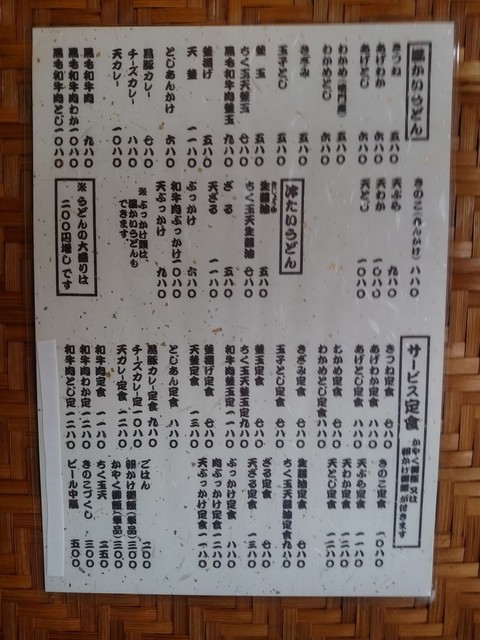 温かいうどん
きつね 五八〇
あげわか 六八〇
あげとじ 六八〇
わかめ(鳴門産) 五八〇
わかめとじ 六八〇
きざみ 五八〇
玉子とじ 五八〇
釜玉 五八〇
ちく玉天釜玉 七八〇
黒毛和牛肉釜玉 九八〇
釜揚げ 五八〇
天釜 一一八〇
とじあんかけ 六八〇
黒豚カレー 七八〇
チーズカレー 八八〇
天カレー 一〇八〇
黒毛和牛肉 九八〇
黒毛和牛肉わか 一〇八〇
黒毛和牛肉とじ 一〇八〇
きのこ(あんかけ) 八八〇
天ぷら 九八〇
天わか 一〇八〇
天とじ 一〇八〇
冷たいうどん
生醤油 五八〇
ちく玉天生醤油 七八〇
ざる 五八〇
天ざる 一一八〇
ぶっかけ 六八〇
和牛肉ぶっかけ 一〇八〇
天ぶっかけ 九八〇
※ぶっかけ類は、
温かいうどんも
できます。
※うどんの大盛りは
二〇〇円増しです
サービス定食
かやく御飯 又は
朝かけ御飯 が付きます
きつね定食 七八〇
あげわか定食 八八〇
あげとじ定食 八八〇
わかめ定食 七八〇
わかめとじ定食 八八〇
きざみ定食 七八〇
玉子とじ定食 七八〇
釜玉定食 七八〇
ちく玉天釜玉定 九八〇
和牛肉釜玉定 一一八〇
釜揚げ定食 七八〇
天釜定食 一三八〇
とじあん定食 八八〇
黒豚カレー定食 九八〇
チーズカレー定 一〇八〇
天カレー定食 一二八〇
和牛肉定食 一一八〇
和牛肉わか定 一二八〇
和牛肉とじ定 一二八〇
きのこ定食 一〇八〇
天ぷら定食 一一八〇
天わか定食 一二八〇
天とじ定食 一二八〇
生醤油定食 七八〇
ちく玉天醤油定食 九八〇
ざる定食 七八〇
天ざる定食 一三八〇
ぶっかけ定食 八八〇
肉ぶっかけ定食 一二八〇
天ぶっかけ定食 一一八〇
ごはん 二〇〇
朝かけ御飯(単品) 三〇〇
かやく御飯(単品) 三〇〇
ちく玉天 二五〇
きのこづくし 三〇〇
ビール中瓶 五〇〇